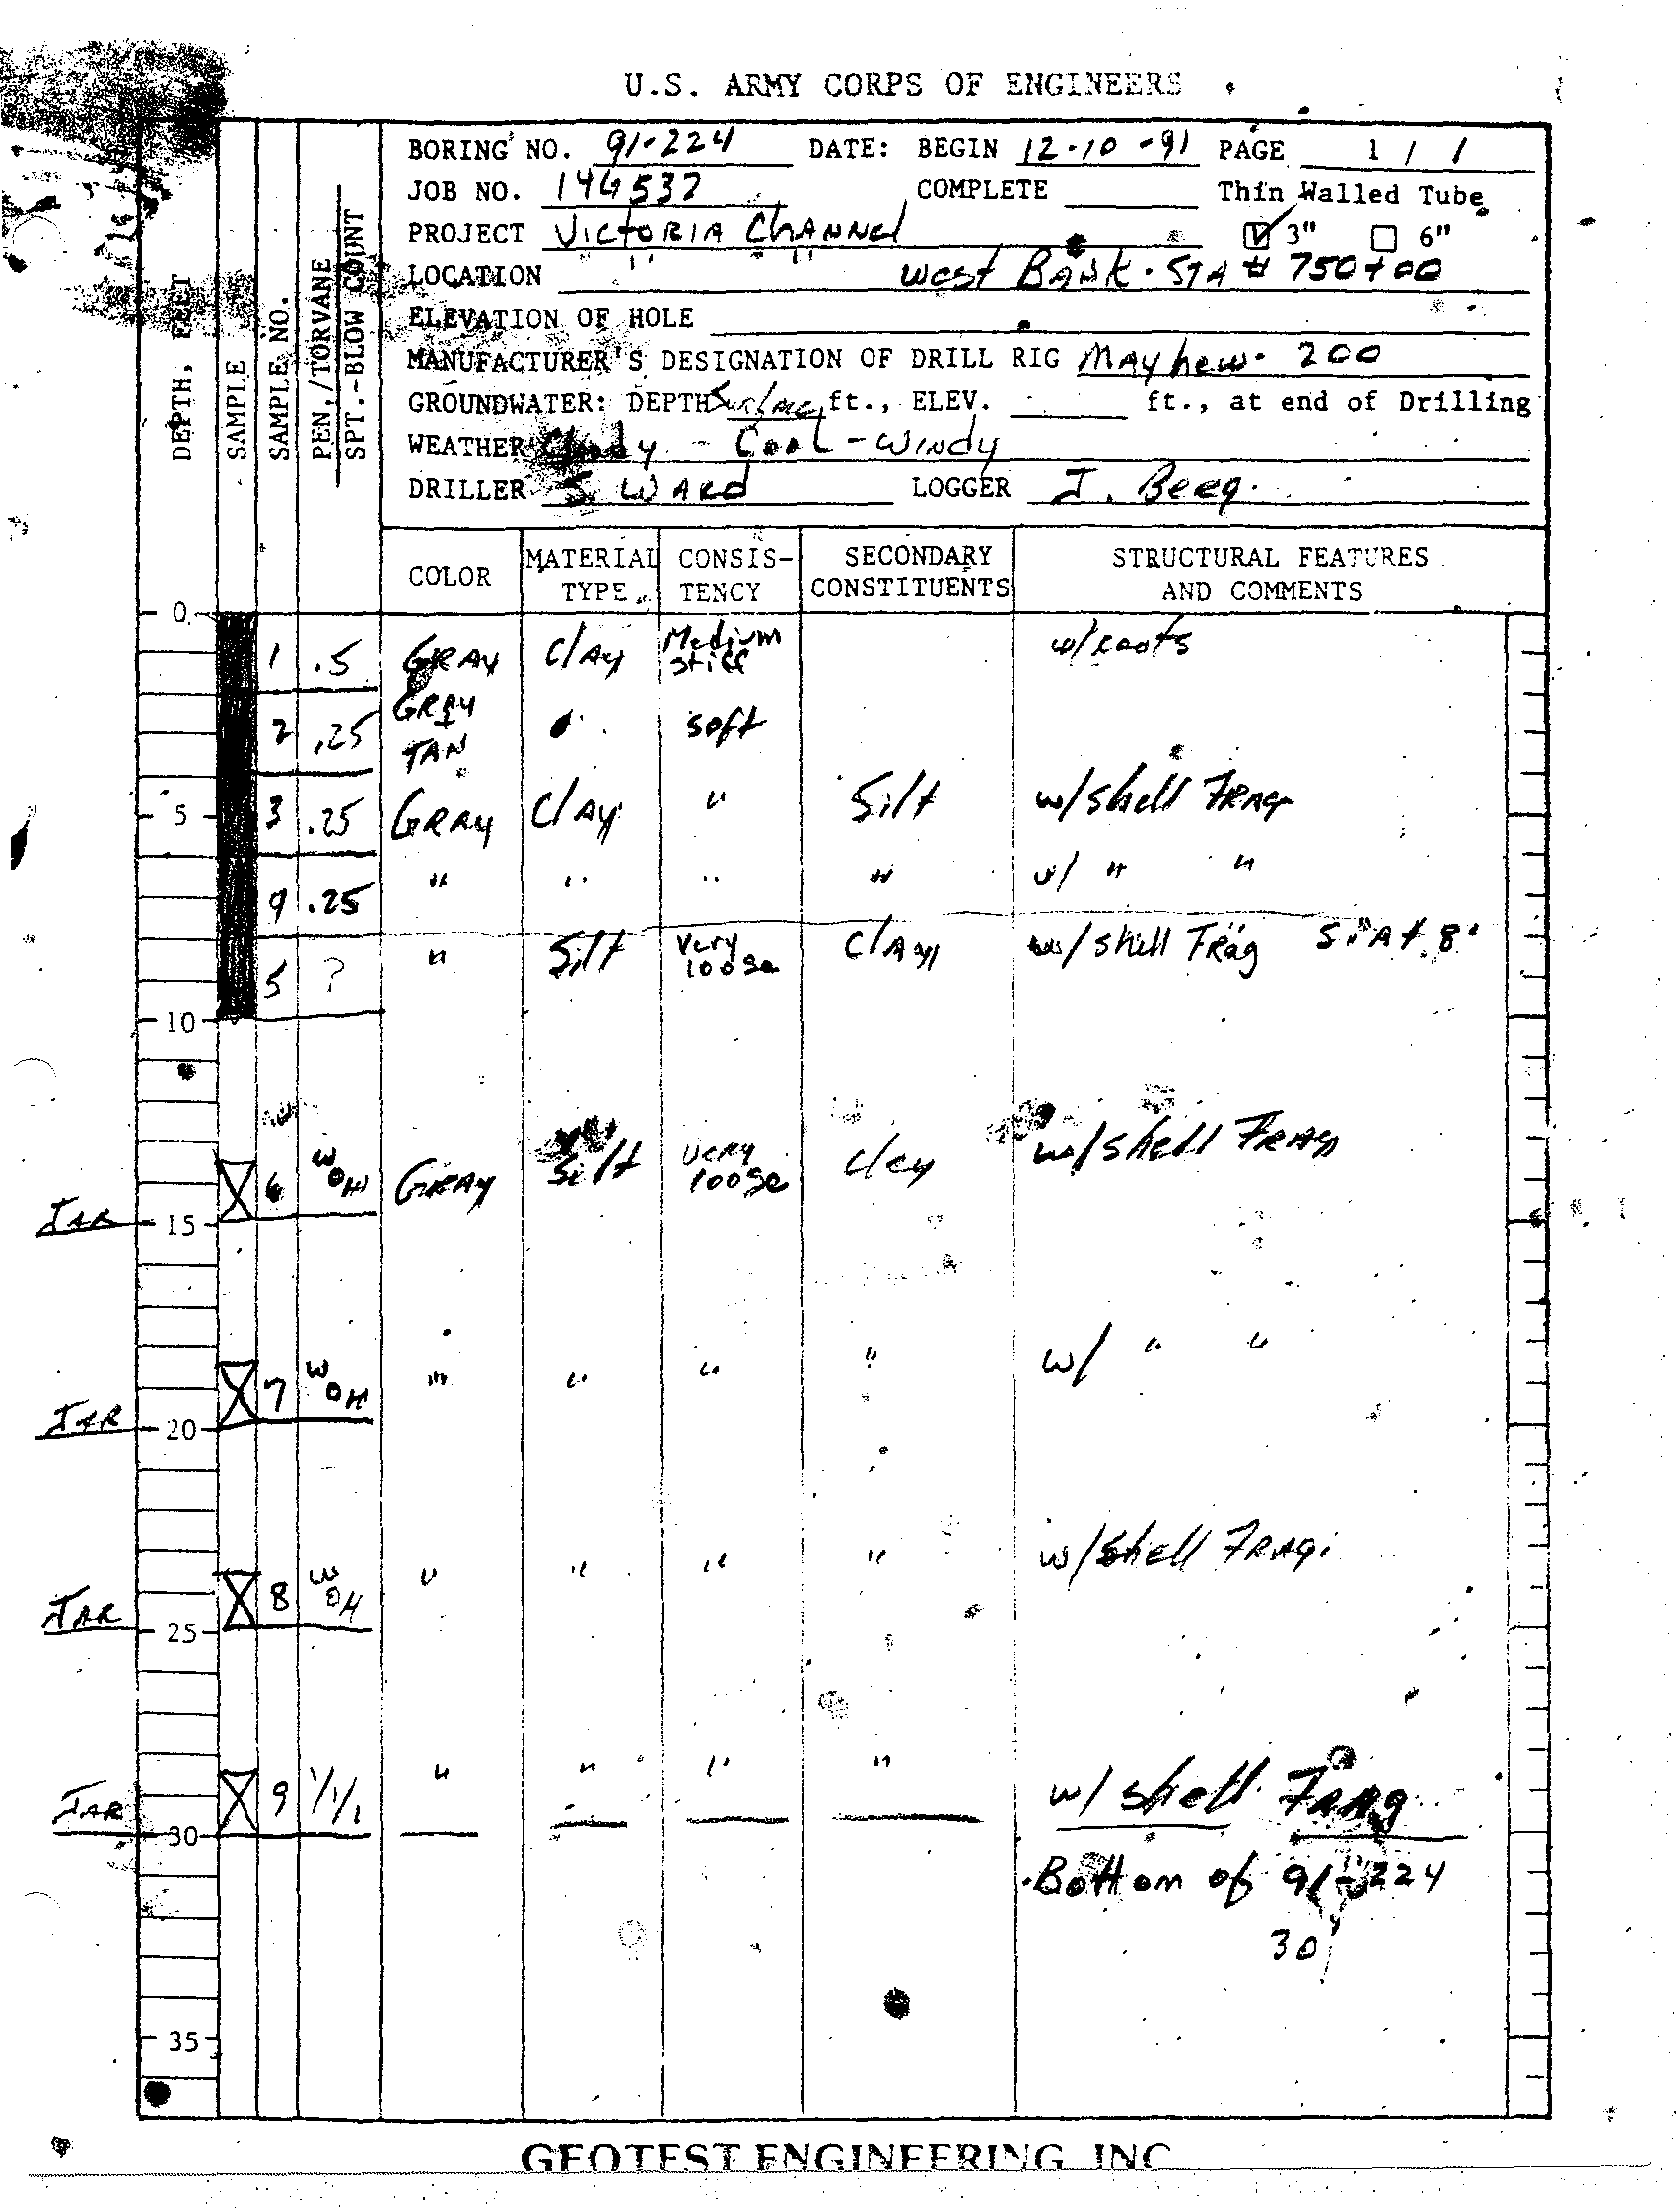 U.S. ARMY CORPS OF ENGINEERS
BORING NO. 91-224 DATE: BEGIN 12-10-91 PAGE 1 / 1
JOB NO. 14G537 COMPLETE Thin Walled Tube
PROJECT Victoria Channel 3" 6"
LOCATION " " West Bank. STA # 750+00
ELEVATION OF HOLE
MANUFACTURER'S DESIGNATION OF DRILL RIG Mayhew- 200
GROUNDWATER: DEPTH Surface ft., ELEV. ft., at end of Drilling
WEATHER Cloudy - Cool - Windy
DRILLER S. Ward LOGGER J.
DEPTH, FEET
SAMPLE
SAMPLE NO.
PEN./TORVANE
SPT.-BLOW COUNT
COLOR MATERIAL TYPE CONSISTENCY SECONDARY CONSTITUENTS STRUCTURAL FEATURES AND COMMENTS
0
1 .5 Gray Clay Medium stiff w/roots
2 .25 Gray + Tan " soft
5 3 .25 Gray Clay " Silt w/shell Frag
4 .25 " " " " w/ " "
5 ? " Silt very loose Clay w/shell Frag S.P At 8'
10
JAR 15 6 WOH Gray Silt very loose clay w/shell Frag
JAR 20 7 WOH " " " " w/ " "
JAR 25 8 WOH " " " " w/shell Frag.
JAR 30 9 1/1/1 " " " " w/ shell Frag
Bottom of 91-224
30'
35
GEOTEST ENGINEERING, INC